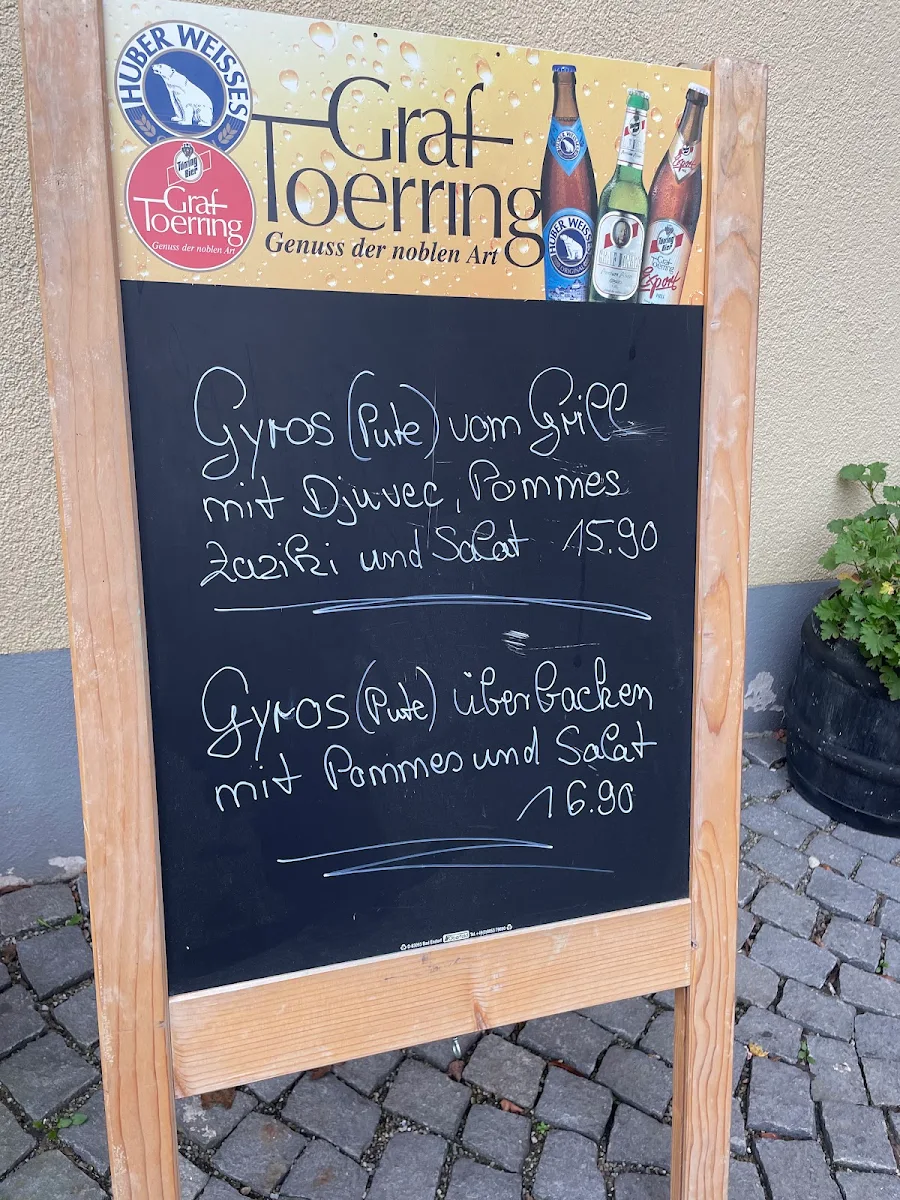 HUBER WEISSES
Graf
Toerring
Genuss der noblen Art
Törring
Bier
Graf
Toerring
Genuss der noblen Art
HUBER WEISSES
ORIGINAL
Export
Gyros (Pute) vom Grill
mit Djuvec, Pommes
Zaziki und Salat 15.90
Gyros (Pute) überbacken
mit Pommes und Salat
16.90